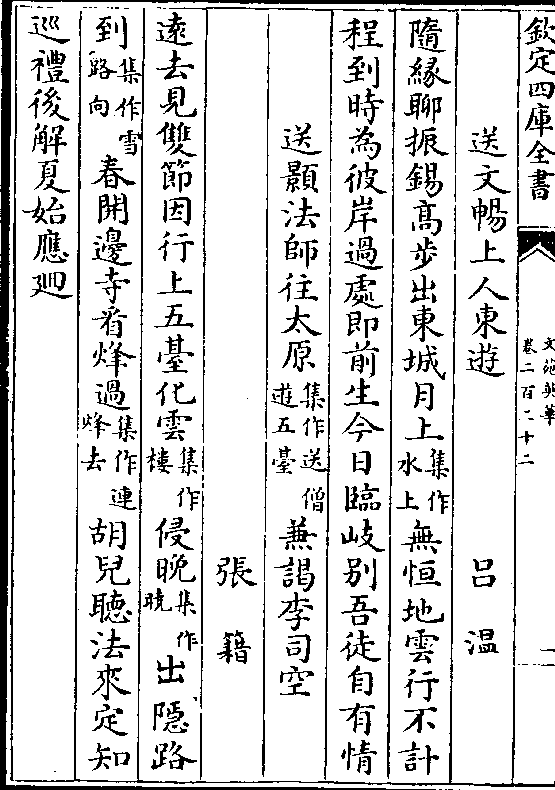 欽定四庫全書
文苑英華
卷二百二十二
一
送文暢上人東遊 呂溫
隨緣聊振錫高步出東城月上集作水上無恒地雲行不計
程到時為彼岸過處即前生今日臨岐別吾徒自有情
送顥法師往太原集作送僧遊五臺兼謁李司空
張籍
遠去見雙節因行上五臺化雲集作樓侵晚集作曉出隱路
到集作雪路向春開邊寺看烽過集作連烽去胡兒聽法來定知
巡禮後解夏始應廻